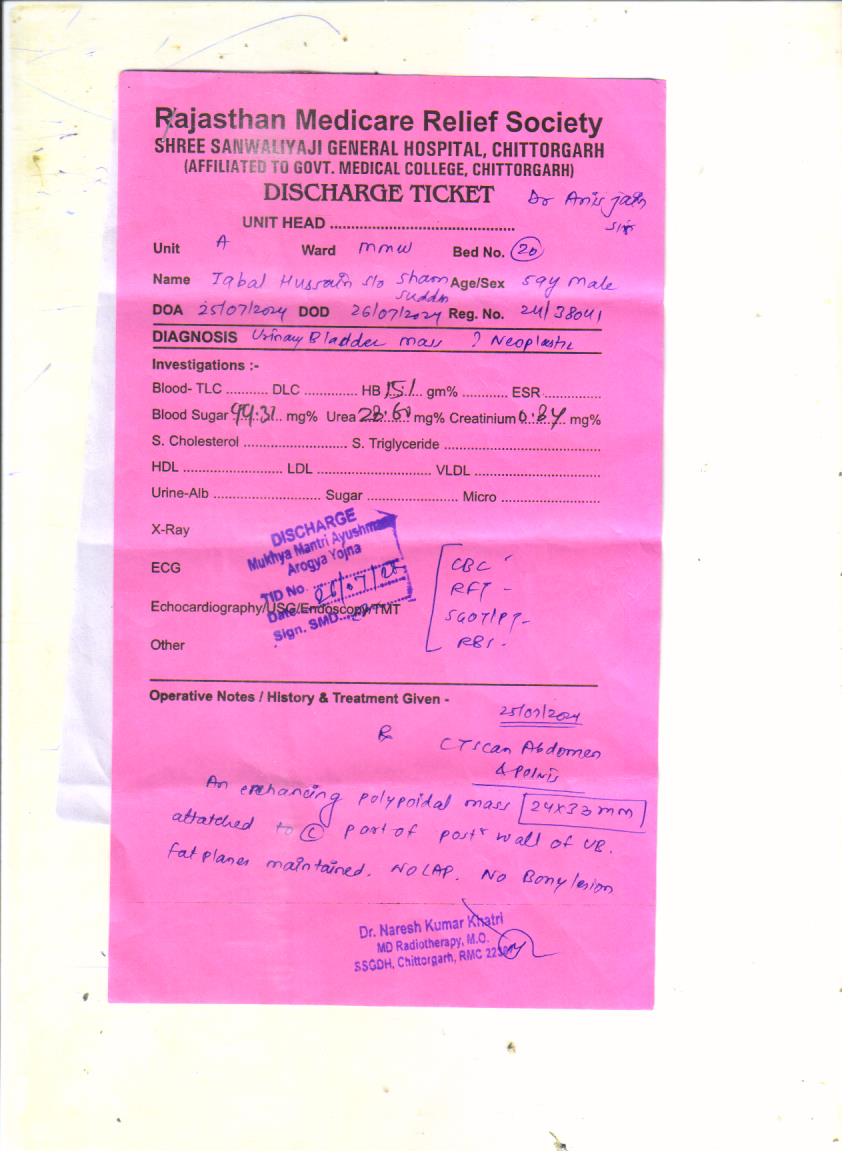 Rajasthan Medicare Relief Society
SHREE SANWALIYAJI GENERAL HOSPITAL, CHITTORGARH
(AFFILIATED TO GOVT. MEDICAL COLLEGE, CHITTORGARH)
DISCHARGE TICKET Dr Anis Jain
UNIT HEAD ............................................ Sir
Unit A Ward MMW Bed No. 20
Name Iqbal Hussain S/o Sham Age/Sex 59y Male
suddin
DOA 25/07/2024 DOD 26/07/2024 Reg. No. 24/38041
DIAGNOSIS Urinary Bladder mass ? Neoplastic
Investigations :-
Blood- TLC .......... DLC ............. HB 15.1 gm% ........... ESR ..............
Blood Sugar 99.31 mg% Urea 28.60 mg% Creatinium 0.84 mg%
S. Cholesterol ......................... S. Triglyceride ......................................
HDL ........................ LDL ............................ VLDL ..............................
Urine-Alb ......................... Sugar ..................... Micro ........................
X-Ray
DISCHARGE
Mukhya Mantri Ayushman
Arogya Yojna
TID No.
Date 26/07/
Sign. SMD
ECG
Echocardiography/USG/Endoscopy/TMT
Other
CBC
RFT -
SGOT/PT -
RBS -
Operative Notes / History & Treatment Given -
25/07/2024
R
CT Scan Abdomen
& Pelvis
An enhancing polypoidal mass 24x33 mm
attatched to C part of postr wall of UB.
Fat planes maintained. NO LAP. No Bony lesion
Dr. Naresh Kumar Khatri
MD Radiotherapy, M.O.
SSGDH, Chittorgarh, RMC